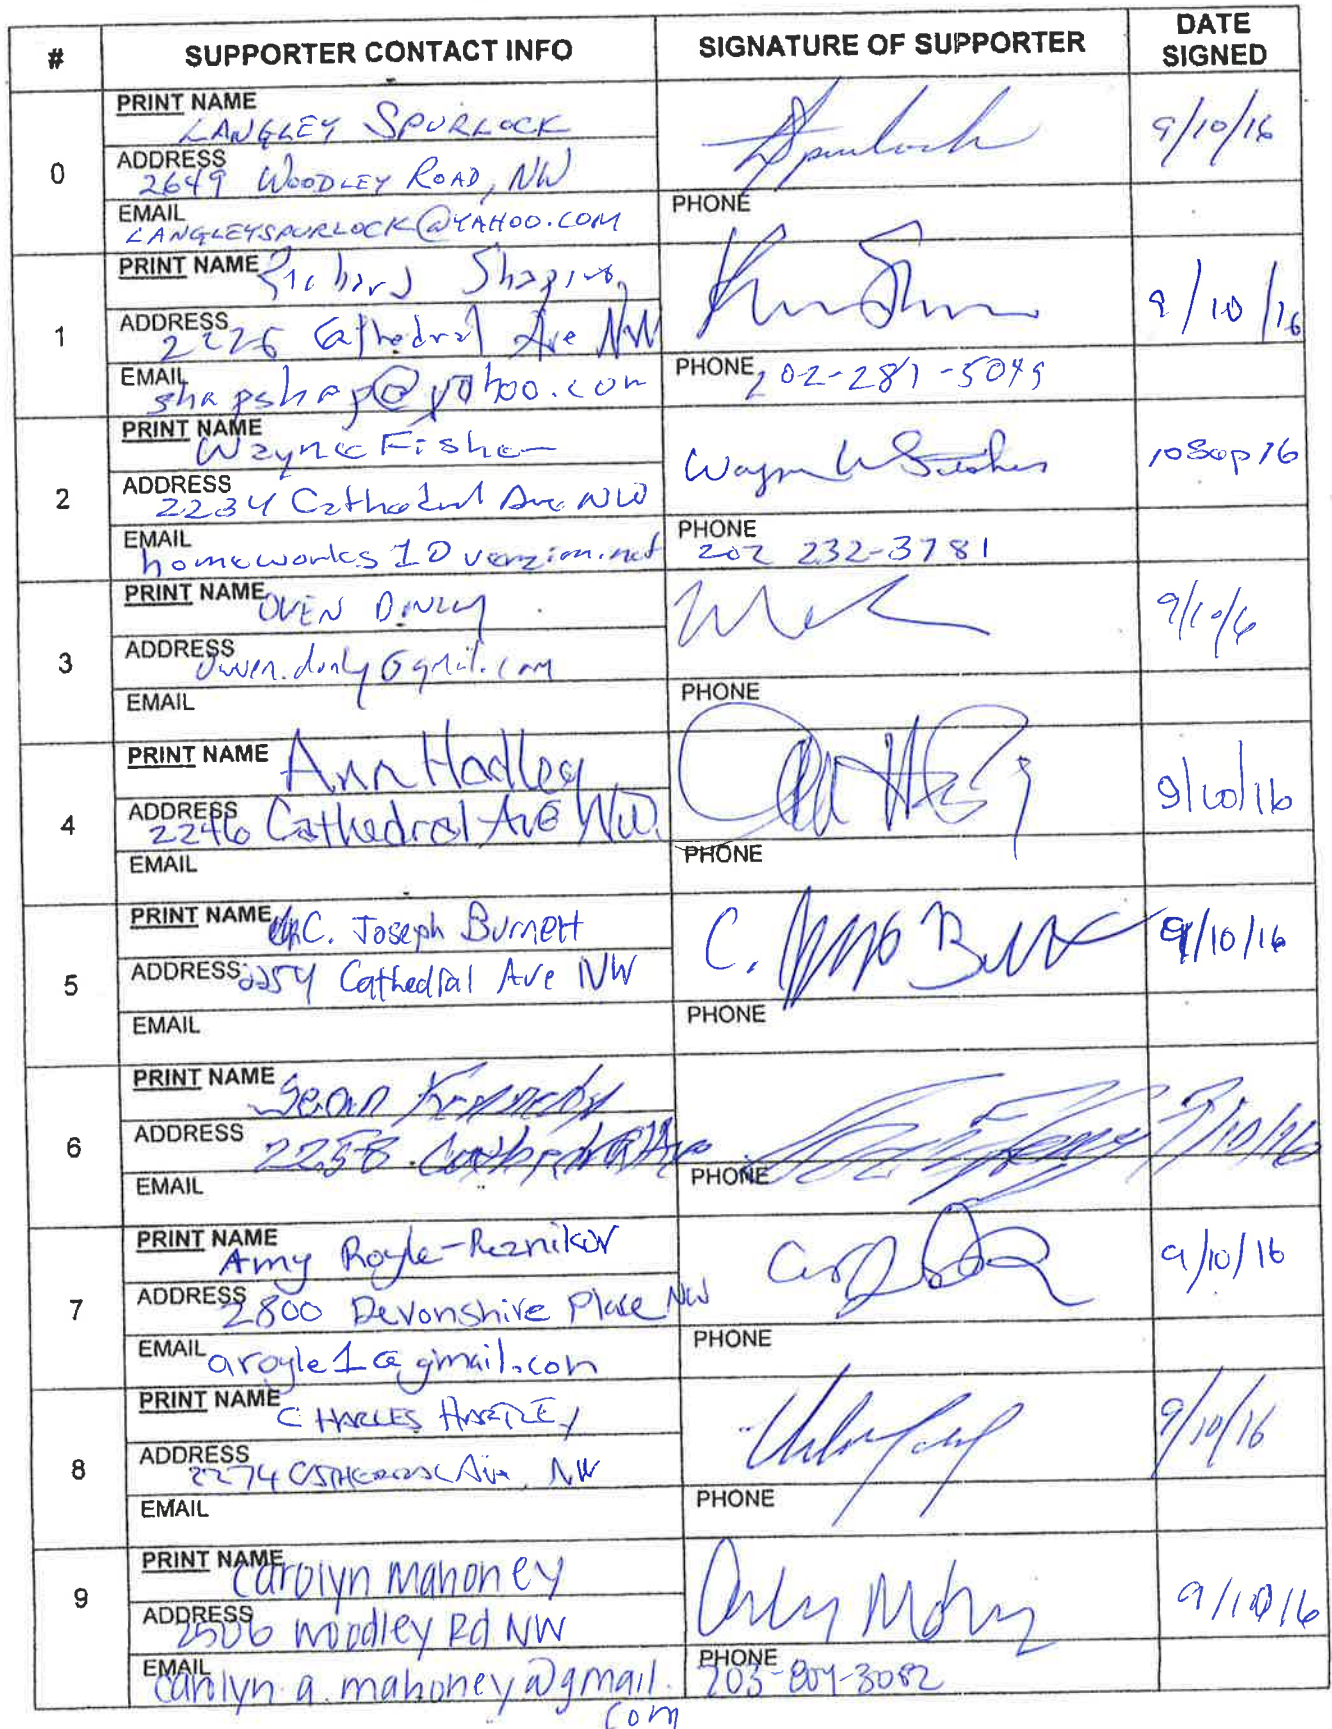 # SUPPORTER CONTACT INFO SIGNATURE OF SUPPORTER DATE SIGNED
0
PRINT NAME LANGLEY SPURLOCK
9/10/16
ADDRESS 2649 WOODLEY ROAD, NW
EMAIL LANGLEYSPURLOCK@YAHOO.COM
PHONE
1
PRINT NAME Richard Shapiro
9/10/16
ADDRESS 2226 Cathedral Ave NW
EMAIL shapshap@yahoo.com
PHONE 202-281-5049
2
PRINT NAME Wayne Fisher
Wayne W Fisher
10 Sep 16
ADDRESS 2234 Cathedral Ave NW
EMAIL homeworks1@verizon.net
PHONE 202 232-3781
3
PRINT NAME OWEN
9/10/6
ADDRESS
EMAIL
PHONE
4
PRINT NAME Ann Hadley
9/10/16
ADDRESS 2246 Cathedral Ave NW.
EMAIL
PHONE
5
PRINT NAME C. Joseph Burnett
C.
9/10/16
ADDRESS 2254 Cathedral Ave NW
EMAIL
PHONE
6
PRINT NAME Sean Kennedy
9/10/16
ADDRESS 2258 Cathedral Ave
EMAIL
PHONE
7
PRINT NAME Amy Royle-Reznikov
9/10/16
ADDRESS 2800 Devonshire Place NW
EMAIL aroyle1@gmail.com
PHONE
8
PRINT NAME CHARLES HARTLEY
9/10/16
ADDRESS 2274 CATHEDRAL Ave, NW
EMAIL
PHONE
9
PRINT NAME Carolyn Mahoney
9/10/16
ADDRESS 2506 Woodley Rd NW
EMAIL carolyn.a.mahoney@gmail.
com
PHONE 203-804-3082